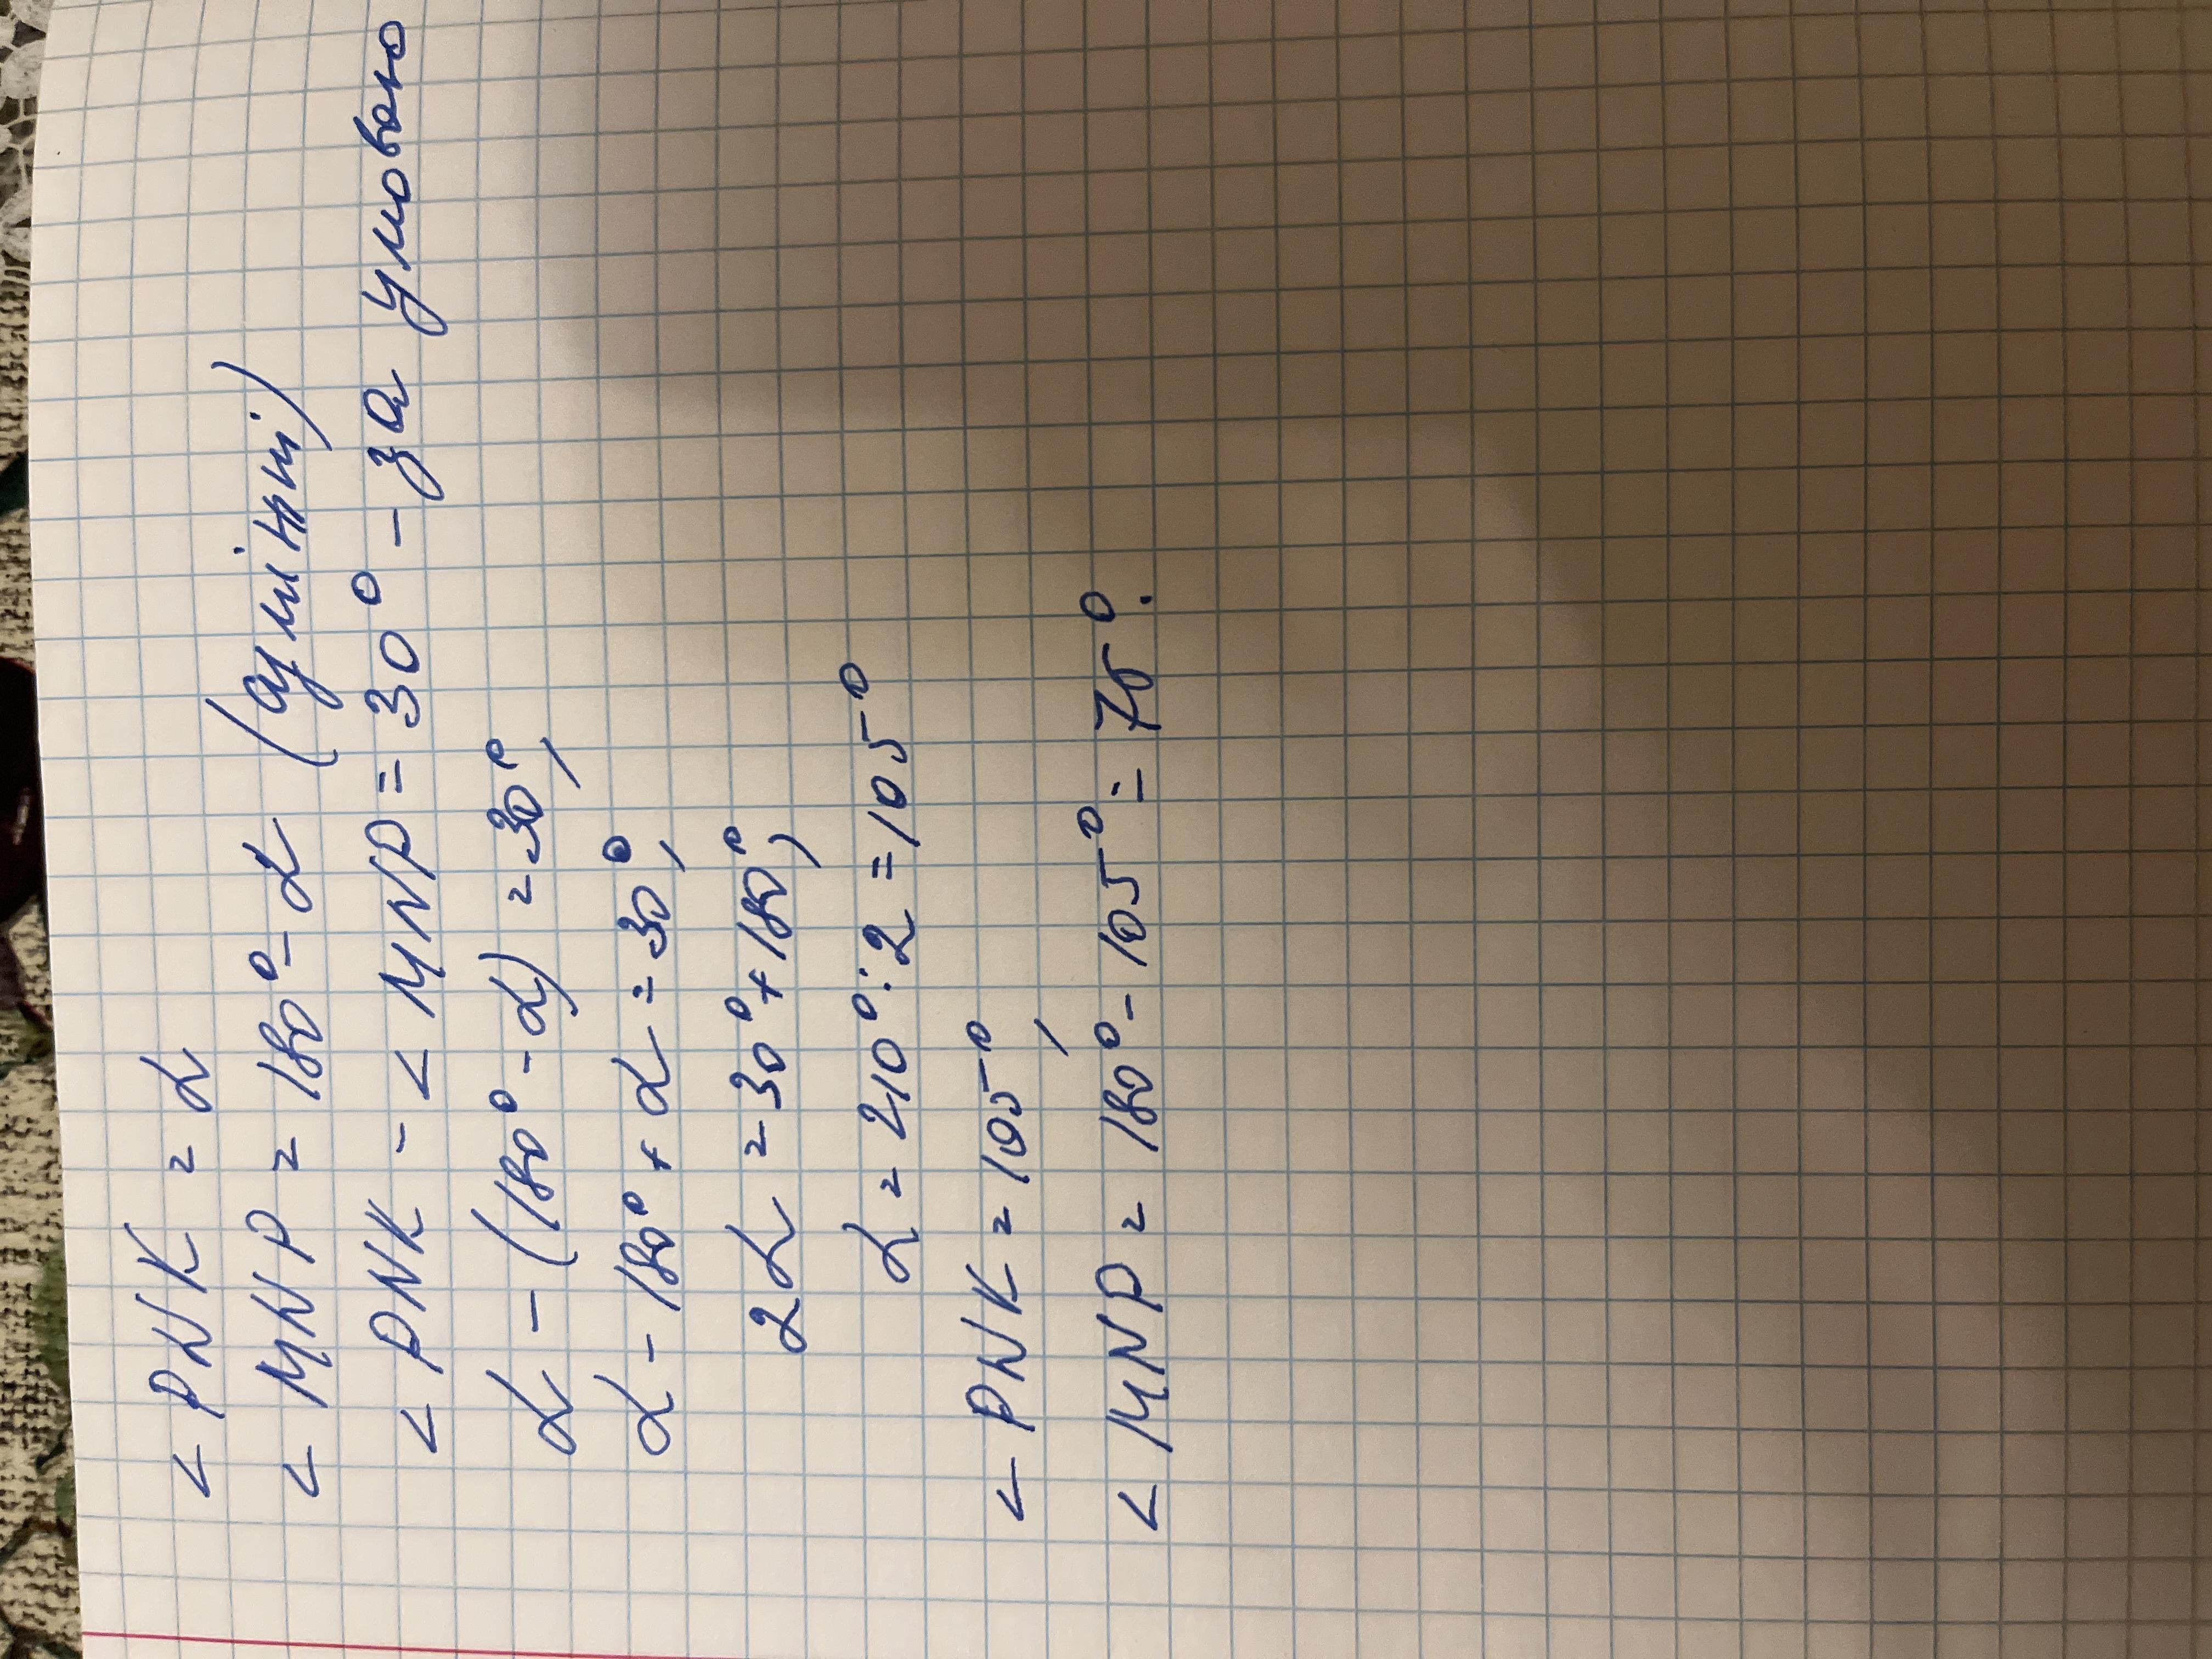 < PNK = α
< MNP = 180° - α (суміжні)
< PNK - < MNP = 30° - за умовою
α - (180° - α) = 30°,
α - 180° + α = 30°,
2α = 30° + 180°,
α = 210° : 2 = 105°
< PNK = 105°,
< MNP = 180° - 105° = 75°.